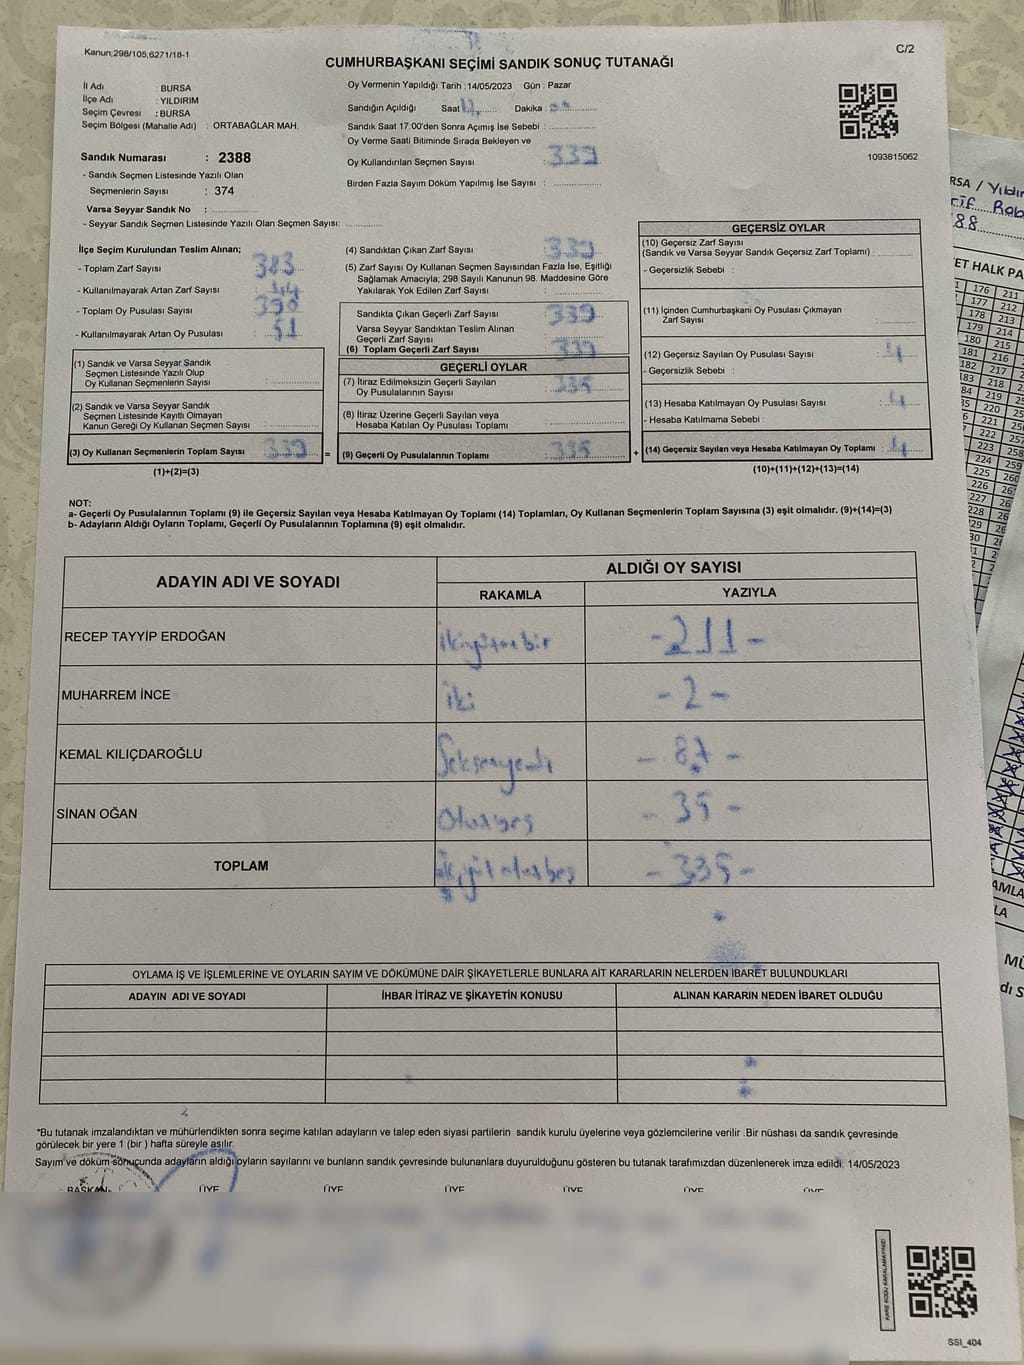 Kanun;298/105;6271/18-1
C/2
CUMHURBAŞKANI SEÇİMİ SANDIK SONUÇ TUTANAĞI
İl Adı : BURSA
İlçe Adı : YILDIRIM
Seçim Çevresi : BURSA
Seçim Bölgesi (Mahalle Adı) : ORTABAĞLAR MAH.
Oy Vermenin Yapıldığı Tarih : 14/05/2023 Gün : Pazar
Sandığın Açıldığı Saat 17 Dakika :
Sandık Saat 17.00'den Sonra Açımış İse Sebebi :
Oy Verme Saati Bitiminde Sırada Bekleyen ve
Oy Kullandırılan Seçmen Sayısı : 339
Birden Fazla Sayım Döküm Yapılmış İse Sayısı :
1093815062
Sandık Numarası : 2388
- Sandık Seçmen Listesinde Yazılı Olan
Seçmenlerin Sayısı : 374
Varsa Seyyar Sandık No :
- Seyyar Sandık Seçmen Listesinde Yazılı Olan Seçmen Sayısı:
İlçe Seçim Kurulundan Teslim Alınan;
- Toplam Zarf Sayısı 383
- Kullanılmayarak Artan Zarf Sayısı : 44
- Toplam Oy Pusulası Sayısı : 390
- Kullanılmayarak Artan Oy Pusulası : 51
(1) Sandık ve Varsa Seyyar Sandık
Seçmen Listesinde Yazılı Olup
Oy Kullanan Seçmenlerin Sayısı :
(2) Sandık ve Varsa Seyyar Sandık
Seçmen Listesinde Kayıtlı Olmayan
Kanun Gereği Oy Kullanan Seçmen Sayısı :
(3) Oy Kullanan Seçmenlerin Toplam Sayısı : 339 =
(1)+(2)=(3)
(4) Sandıktan Çıkan Zarf Sayısı : 339
(5) Zarf Sayısı Oy Kullanan Seçmen Sayısından Fazla İse, Eşitliği
Sağlamak Amacıyla; 298 Sayılı Kanunun 98. Maddesine Göre
Yakılarak Yok Edilen Zarf Sayısı :
Sandıkta Çıkan Geçerli Zarf Sayısı : 339
Varsa Seyyar Sandıktan Teslim Alınan
Geçerli Zarf Sayısı :
(6) Toplam Geçerli Zarf Sayısı : 339
GEÇERLİ OYLAR
(7) İtiraz Edilmeksizin Geçerli Sayılan
Oy Pusulasının Sayısı : 335
(8) İtiraz Üzerine Geçerli Sayılan veya
Hesaba Katılan Oy Pusulası Toplamı :
(9) Geçerli Oy Pusulalarının Toplamı : 335 +
GEÇERSİZ OYLAR
(10) Geçersiz Zarf Sayısı
(Sandık ve Varsa Seyyar Sandık Geçersiz Zarf Toplamı) :
- Geçersizlik Sebebi :
(11) İçinden Cumhurbaşkanı Oy Pusulası Çıkmayan
Zarf Sayısı :
(12) Geçersiz Sayılan Oy Pusulası Sayısı : 4
- Geçersizlik Sebebi :
(13) Hesaba Katılmayan Oy Pusulası Sayısı : 4
- Hesaba Katılmama Sebebi :
(14) Geçersiz Sayılan veya Hesaba Katılmayan Oy Toplamı : 4
(10)+(11)+(12)+(13)=(14)
NOT:
a- Geçerli Oy Pusulalarının Toplamı (9) ile Geçersiz Sayılan veya Hesaba Katılmayan Oy Toplamı (14) Toplamları, Oy Kullanan Seçmenlerin Toplam Sayısına (3) eşit olmalıdır. (9)+(14)=(3)
b- Adayların Aldığı Oyların Toplamı, Geçerli Oy Pusulalarının Toplamına (9) eşit olmalıdır.
ADAYIN ADI VE SOYADI
ALDIĞI OY SAYISI
RAKAMLA YAZIYLA
RECEP TAYYİP ERDOĞAN ikiyüzonbir -211-
MUHARREM İNCE iki -2-
KEMAL KILIÇDAROĞLU Seksenyedi -87-
SİNAN OĞAN Otuzbeş -35-
TOPLAM -335-
OYLAMA İŞ VE İŞLEMLERİNE VE OYLARIN SAYIM VE DÖKÜMÜNE DAİR ŞİKAYETLERLE BUNLARA AİT KARARLARIN NELERDEN İBARET BULUNDUKLARI
ADAYIN ADI VE SOYADI İHBAR İTİRAZ VE ŞİKAYETİN KONUSU ALINAN KARARIN NEDEN İBARET OLDUĞU
*Bu tutanak imzalandıktan ve mühürlendikten sonra seçime katılan adayların ve talep eden siyasi partilerin sandık kurulu üyelerine veya gözlemcilerine verilir .Bir nüshası da sandık çevresinde
görülecek bir yere 1 (bir ) hafta süreyle asılır.
Sayım ve döküm sonucunda adayların aldığı oyların sayılarını ve bunların sandık çevresinde bulunanlara duyurulduğunu gösteren bu tutanak tarafımızdan düzenlenerek imza edildi. 14/05/2023
BAŞKAN ÜYE ÜYE ÜYE ÜYE ÜYE ÜYE
SSI_404